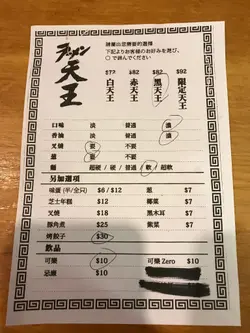 ラーメン
天王
請圈出您想要的選擇
下記よりお客様のお好みを選び、
○で囲んでください
$77 $82 $82 $92
白天王 赤天王 黑天王 限定天王
口味 淡 普通 濃
香油 淡 普通 濃
叉燒 要 不要
蔥 要 不要
麵 超硬 / 硬 / 普通 / 軟 / 超軟
另加選項
味蛋 (半/全只) $6 / $12 蔥 $7
芝士年糕 $12 椰菜 $7
叉燒 $18 黑木耳 $7
豚角煮 $25 紫菜 $7
烤餃子 $30
飲品
可樂 $10 可樂 Zero $10
忌廉 $10